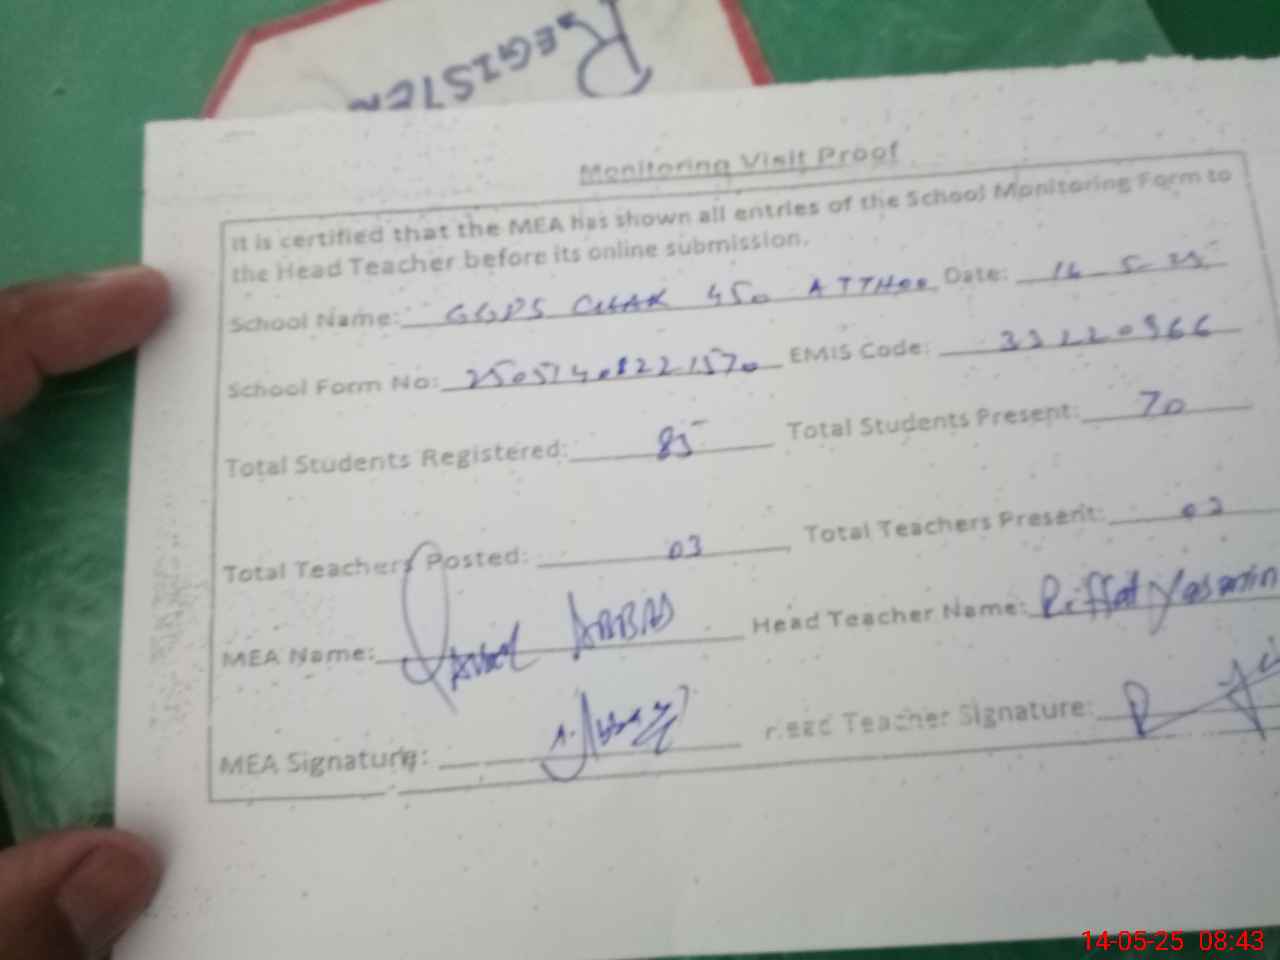 REGISTER
Monitoring Visit Proof
It is certified that the MEA has shown all entries of the School Monitoring Form to
the Head Teacher before its online submission.
School Name: GGPS CHAK 450 ATTHOO Date: 14-5-25
School Form No: EMIS Code:
Total Students Registered: 85 Total Students Present: 70
Total Teachers Posted: 03 Total Teachers Present: 02
MEA Name: ABBAS Head Teacher Name: Riffat Yasmin
MEA Signature: Head Teacher Signature:
14-05-25 08:43